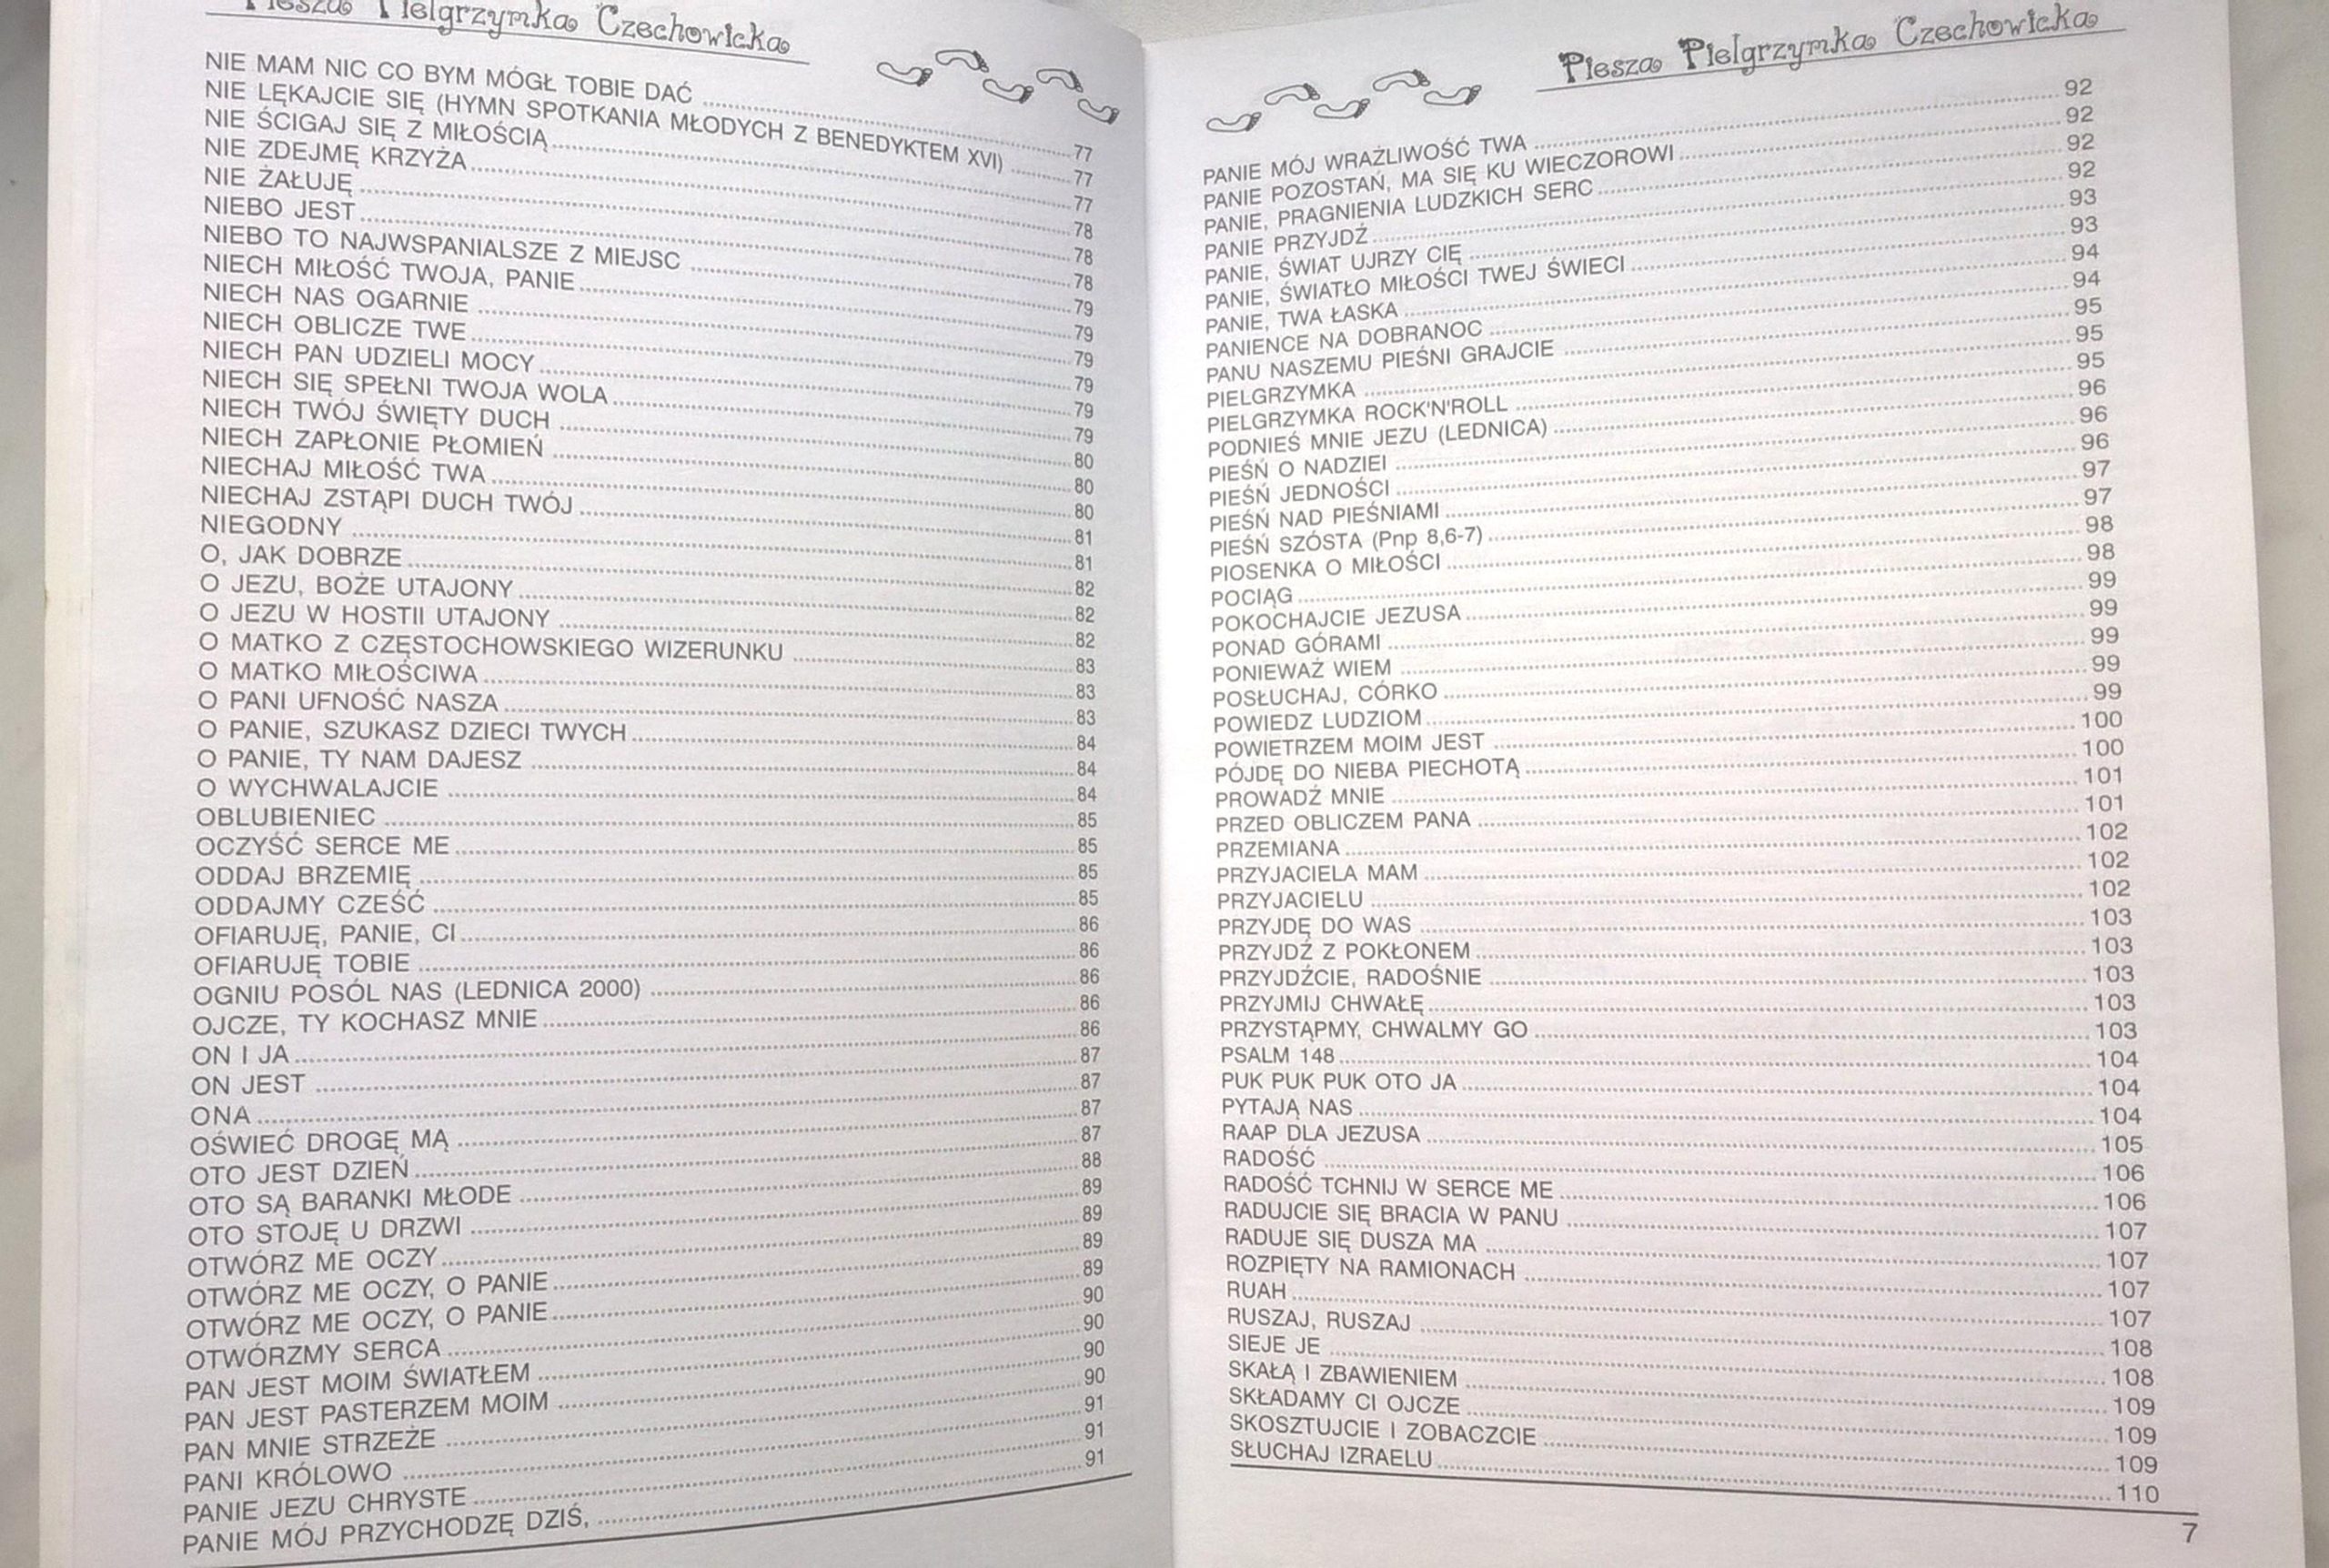 Piesza Pielgrzymka Czechowicka
NIE MAM NIC CO BYM MÓGŁ TOBIE DAĆ ... 77
NIE LĘKAJCIE SIĘ (HYMN SPOTKANIA MŁODYCH Z BENEDYKTEM XVI) ... 77
NIE ŚCIGAJ SIĘ Z MIŁOŚCIĄ ... 77
NIE ZDEJMĘ KRZYŻA ... 78
NIE ŻAŁUJĘ ... 78
NIEBO JEST ... 78
NIEBO TO NAJWSPANIALSZE Z MIEJSC ... 79
NIECH MIŁOŚĆ TWOJA, PANIE ... 79
NIECH NAS OGARNIE ... 79
NIECH OBLICZE TWE ... 79
NIECH PAN UDZIELI MOCY ... 79
NIECH SIĘ SPEŁNI TWOJA WOLA ... 79
NIECH TWÓJ ŚWIĘTY DUCH ... 80
NIECH ZAPŁONIE PŁOMIEŃ ... 80
NIECHAJ MIŁOŚĆ TWA ... 80
NIECHAJ ZSTĄPI DUCH TWÓJ ... 81
NIEGODNY ... 81
O, JAK DOBRZE ... 82
O JEZU, BOŻE UTAJONY ... 82
O JEZU W HOSTII UTAJONY ... 82
O MATKO Z CZĘSTOCHOWSKIEGO WIZERUNKU ... 83
O MATKO MIŁOŚCIWA ... 83
O PANI UFNOŚĆ NASZA ... 83
O PANIE, SZUKASZ DZIECI TWYCH ... 84
O PANIE, TY NAM DAJESZ ... 84
O WYCHWALAJCIE ... 84
OBLUBIENIEC ... 85
OCZYŚĆ SERCE ME ... 85
ODDAJ BRZEMIĘ ... 85
ODDAJMY CZEŚĆ ... 85
OFIARUJĘ, PANIE, CI ... 86
OFIARUJĘ TOBIE ... 86
OGNIU POSÓL NAS (LEDNICA 2000) ... 86
OJCZE, TY KOCHASZ MNIE ... 86
ON I JA ... 86
ON JEST ... 87
ONA ... 87
OŚWIEĆ DROGĘ MĄ ... 87
OTO JEST DZIEŃ ... 87
OTO SĄ BARANKI MŁODE ... 88
OTO STOJĘ U DRZWI ... 89
OTWÓRZ ME OCZY ... 89
OTWÓRZ ME OCZY, O PANIE ... 89
OTWÓRZ ME OCZY, O PANIE ... 89
OTWÓRZMY SERCA ... 90
PAN JEST MOIM ŚWIATŁEM ... 90
PAN JEST PASTERZEM MOIM ... 90
PAN MNIE STRZEŻE ... 90
PANI KRÓLOWO ... 91
PANIE JEZU CHRYSTE ... 91
PANIE MÓJ PRZYCHODZĘ DZIŚ, ... 91
Piesza Pielgrzymka Czechowicka
PANIE MÓJ WRAŻLIWOŚĆ TWA ... 92
PANIE POZOSTAŃ, MA SIĘ KU WIECZOROWI ... 92
PANIE, PRAGNIENIA LUDZKICH SERC ... 92
PANIE PRZYJDŹ ... 92
PANIE, ŚWIAT UJRZY CIĘ ... 93
PANIE, ŚWIATŁO MIŁOŚCI TWEJ ŚWIECI ... 93
PANIE, TWA ŁASKA ... 94
PANIENCE NA DOBRANOC ... 94
PANU NASZEMU PIEŚNI GRAJCIE ... 95
PIELGRZYMKA ... 95
PIELGRZYMKA ROCK'N'ROLL ... 95
PODNIEŚ MNIE JEZU (LEDNICA) ... 96
PIEŚŃ O NADZIEI ... 96
PIEŚŃ JEDNOŚCI ... 96
PIEŚŃ NAD PIEŚNIAMI ... 97
PIEŚŃ SZÓSTA (Pnp 8,6-7) ... 97
PIOSENKA O MIŁOŚCI ... 98
POCIĄG ... 98
POKOCHAJCIE JEZUSA ... 99
PONAD GÓRAMI ... 99
PONIEWAŻ WIEM ... 99
POSŁUCHAJ, CÓRKO ... 99
POWIEDZ LUDZIOM ... 99
POWIETRZEM MOIM JEST ... 100
PÓJDĘ DO NIEBA PIECHOTĄ ... 100
PROWADŹ MNIE ... 101
PRZED OBLICZEM PANA ... 101
PRZEMIANA ... 102
PRZYJACIELA MAM ... 102
PRZYJACIELU ... 102
PRZYJDĘ DO WAS ... 103
PRZYJDŹ Z POKŁONEM ... 103
PRZYJDŹCIE, RADOŚNIE ... 103
PRZYJMIJ CHWAŁĘ ... 103
PRZYSTĄPMY, CHWALMY GO ... 103
PSALM 148 ... 104
PUK PUK PUK OTO JA ... 104
PYTAJĄ NAS ... 104
RAAP DLA JEZUSA ... 105
RADOŚĆ ... 106
RADOŚĆ TCHNIJ W SERCE ME ... 106
RADUJCIE SIĘ BRACIA W PANU ... 107
RADUJE SIĘ DUSZA MA ... 107
ROZPIĘTY NA RAMIONACH ... 107
RUAH ... 107
RUSZAJ, RUSZAJ ... 108
SIEJE JE ... 108
SKAŁĄ I ZBAWIENIEM ... 109
SKŁADAMY CI OJCZE ... 109
SKOSZTUJCIE I ZOBACZCIE ... 109
SŁUCHAJ IZRAELU ... 110
7